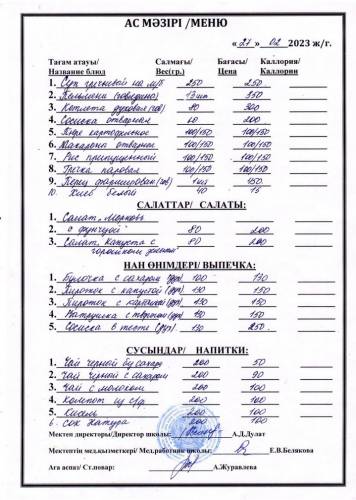 АС МӘЗІРІ /МЕНЮ
« 21 » 02 2023 ж/г.
Тағам атауы/ Салмағы/ Бағасы/ Каллория/
Название блюд Вес(гр.) Цена Каллории
1. Суп гречневый на м/б 250 250
2. Пельмени (говядина) 13шт 350
3. Котлета духовая (гов) 80 300
4. Сосиска отварная 200
5. Пюре картофельное 100/150 100/150
6. Макароны отварные 100/150 100/150
7. Рис припущенный 100/150 100/150
8. Гречка паровая 100/150 100/150
9. Перец фарширован (гов) 1шт 450
10. Хлеб белый 40 15
САЛАТТАР/ САЛАТЫ:
1. Салат „Морковь
2. с фунчозой" 80 200
3. Салат. Капуста с 80 200
горошком
НАН ӨНІМДЕРІ/ ВЫПЕЧКА:
1. Булочка с сахаром 100 130
2. Пирожок с капустой 130 150
3. Пирожок с картошкой 130 150
4. Ватрушка с творогом 130 150
5. Сосиска в тесте 130 250
СУСЫНДАР/ НАПИТКИ:
1. Чай черный без сахара 200 50
2. Чай черный с сахаром 200 90
3. Чай с молоком 200 100
4. Компот из с/ф 200 100
5. Кисель 200 100
6. сок натура 200 100
Мектеп директоры/Директор школы: А.Д.Дулат
Мектептің мед.қызметкері/ Мед.работник школы: Е.В.Белякова
Аға аспаз/ Ст.повар: А.Журавлева